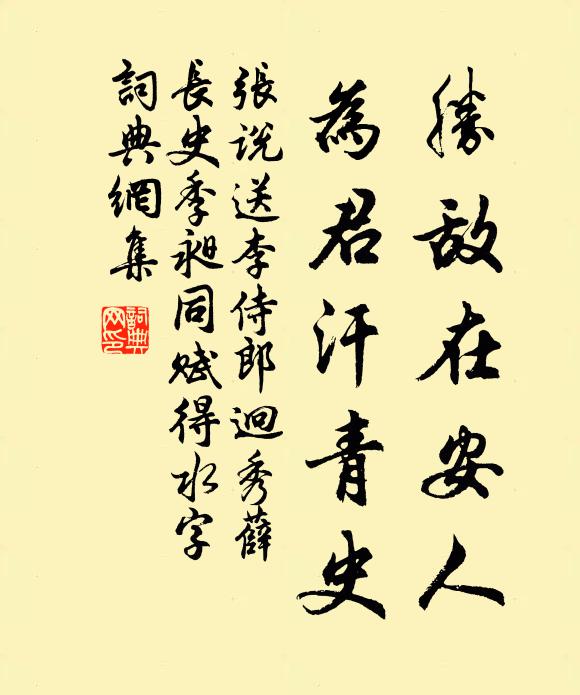 勝敌在安人
為君汗青史
張说送李侍郎迥秀薛
長史季昶同赋得水字
詞典網集
詞典
网印